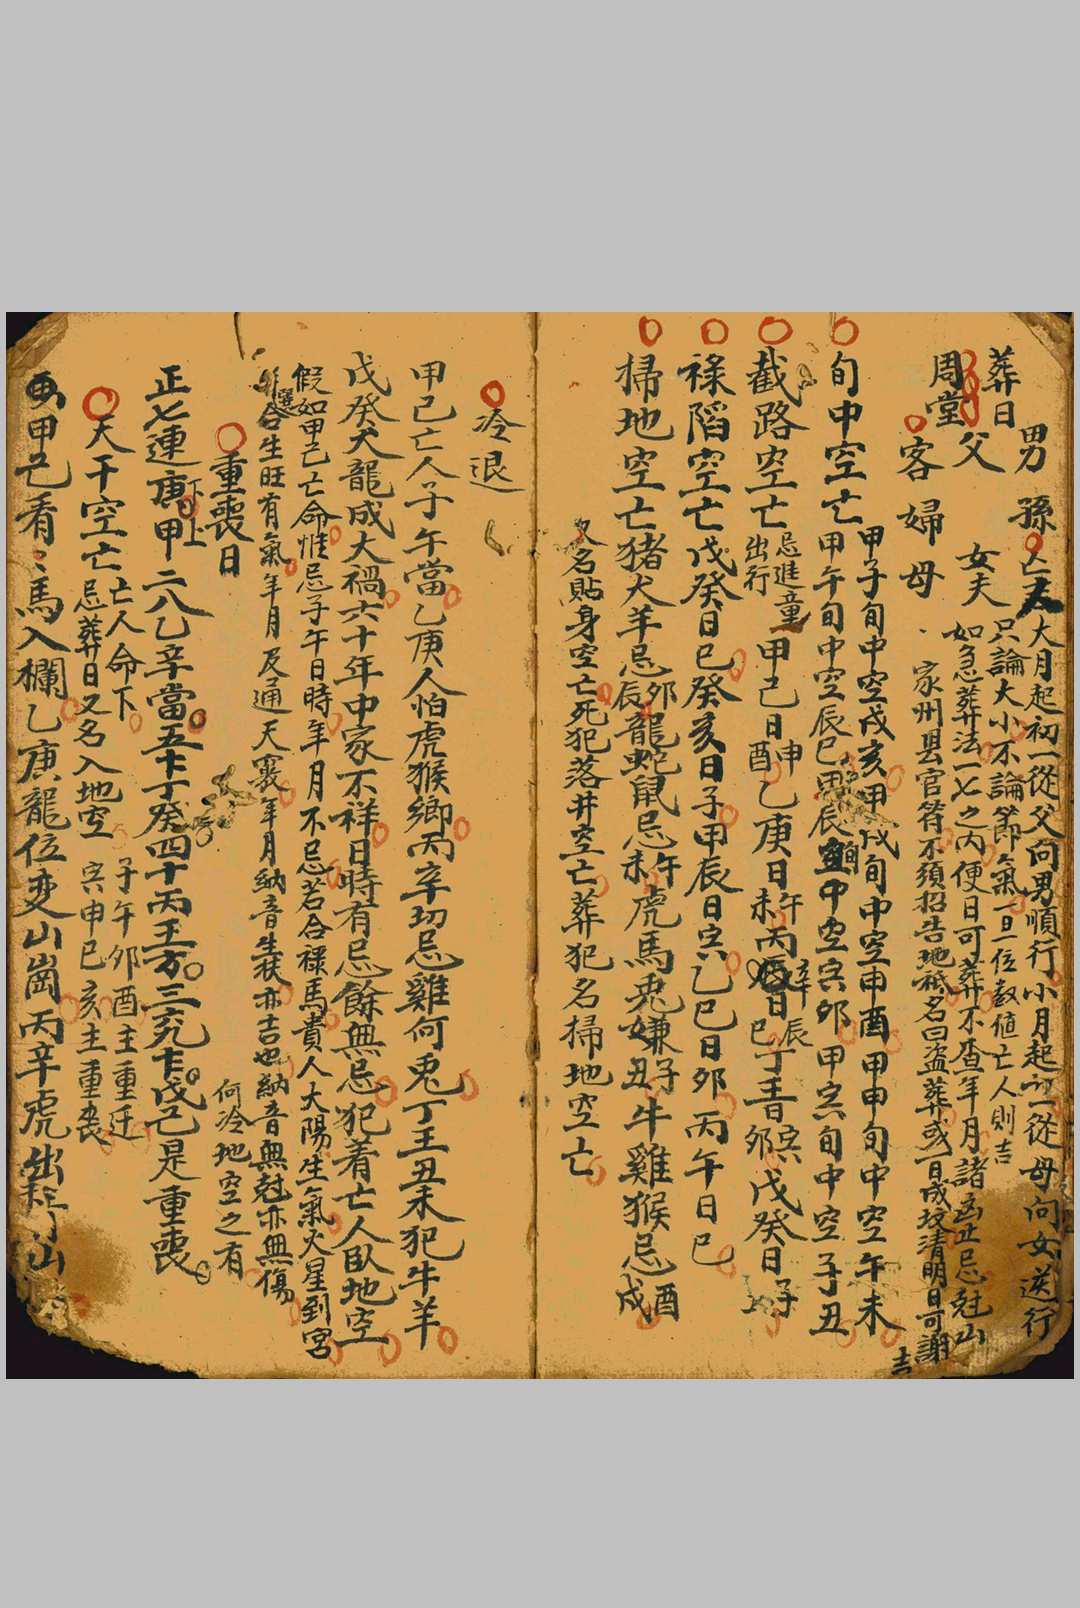 葬日
周堂
男 孫
父 女夫
客 婦 母
亡
大月起初一從父向男順行小月起初一從母向女逆行
只論大小不論節氣一旦一位数值亡人則吉
如急葬法一七之內便日可葬不查年月諸凶止忌尅山
家州县官符不須招告地祇名曰盗葬或一日成坟清明日可謝
吉
旬中空亡
甲子旬中空戌亥甲戌旬中空申酉甲申旬中空午未
甲午旬中空辰巳甲辰旬中空寅卯甲寅旬中空子丑
截路空亡
忌進童
出行
甲己日申酉乙庚日午未丙辛日辰巳丁壬寅卯戊癸日子
祿陷空亡戊癸日巳癸亥日子甲辰日寅乙巳日卯丙午日巳
掃地空亡猪犬羊忌卯辰龍蛇鼠忌午未虎馬兎嫌子丑牛雞猴忌酉戌
又名貼身空亡死犯落井空亡葬犯名掃地空亡
冷退
甲己亡人子午當乙庚人怕虎猴鄉丙辛切忌雞何兎丁壬丑未犯牛羊
戊癸犬龍成大禍六十年中家不祥日時有忌餘無忌犯着亡人臥地空
假如甲己亡命惟忌子午日時年月不忌若合祿馬貴人大陽生氣火星到宮
選合生旺有氣年月及通天竅年月納音生扶亦吉也納音無尅亦無傷
何冷地空之有
重喪日
正七連庚甲二八乙辛當五十丁癸四十丙壬方三六九十戊己是重喪
天干空亡
亡人命下
忌葬日又名入地空
子午卯酉主重迁
寅申巳亥主重喪
甲己看馬入欄乙庚龍位变山崗丙辛虎出山